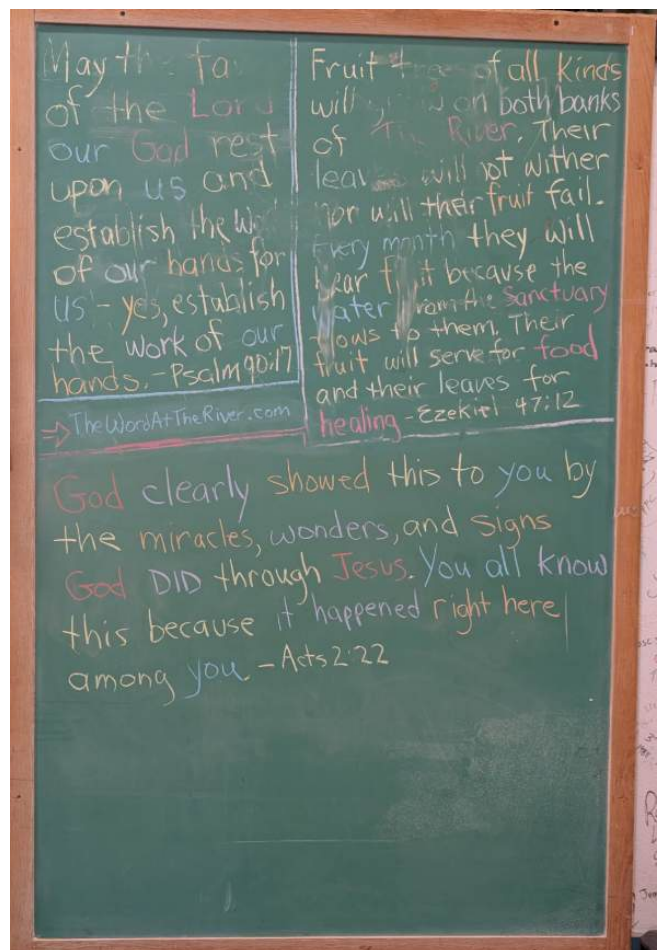 May th fa
of the Lord
our God rest
upon us and
establish the W
of our hands for
us - yes, establish
the work of our
hands. - Psalm 90:17
TheWordAtTheRiver.com
Fruit tree of all Kinds
will on both banks
of The River. Their
leav will not wither
nor will their fruit fail.
Every month they will
bear fruit because the
water from the Sanctuary
flows to them. Their
fruit will serve for food
and their leaves for
healing - Ezekiel 47:12
God clearly showed this to you by
the miracles, wonders, and signs
God DID through Jesus. You all know
this because it happened right here
among you - Acts 2:22